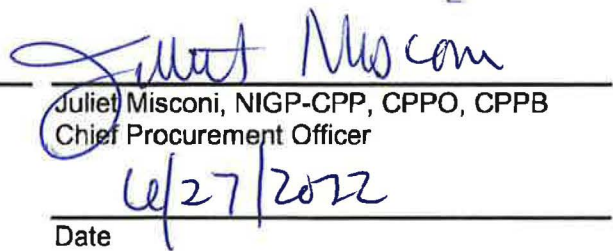 Juliet Misconi
Juliet Misconi, NIGP-CPP, CPPO, CPPB
Chief Procurement Officer
6/27/2022
Date